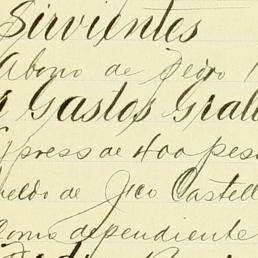 Sirvientes
Abono de Pedro
Gastos Grall
Express de 400 pes
ueldo de Fco Castell
Como dependiente